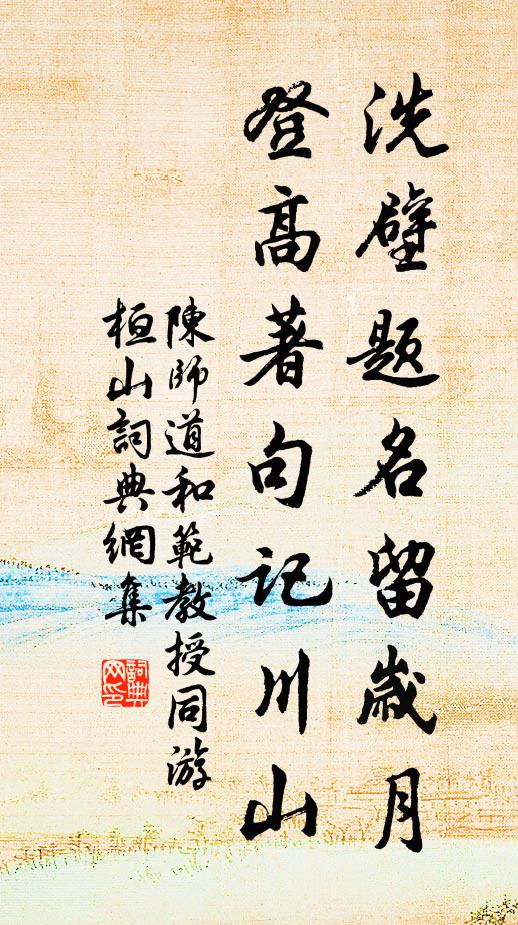 洗壁题名留歲月
登高著句記川山
陳師道和範教授同游
桓山詞典網集
詞典
网印